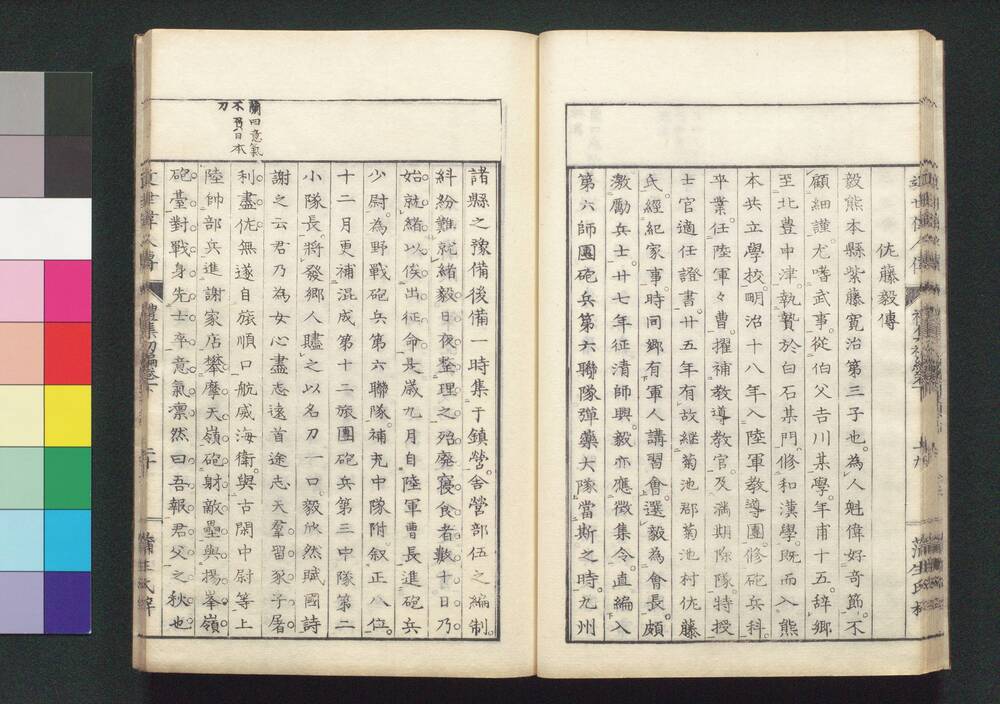 佐藤毅傳
毅熊本縣紫藤寛治第三子也。為人魁偉好奇節。不
顧細謹。尤嗜武事。從伯父吉川某學。年甫十五。辞鄉
至北豊中津。執贄於白石某門。修和漢學。既而入熊
本共立學校。明治十八年入陸軍教導團。修砲兵科
卒業。任陸軍々曹。擢補教導教官。及滿期除隊。特授
士官適任證書。廿五年有故継菊池郡菊池村佐藤
氏。經紀家事。時同鄉有軍人講習會。選毅為會長。頗
激勵兵士。廿七年征清師興。毅亦應徴集令。直編入
第六師團砲兵第六聯隊彈藥大隊。當斯之時。九州
諸縣之豫備後備一時集于鎮營。舍營部伍之編制
糾紛難就緒。毅日夜整理之。殆廢寝食者數十日。乃
始就緒。以俟出征命。是歳九月自陸軍曹長進砲兵
少尉。為野戰砲兵第六聯隊補充中隊附。叙正八位。
十二月更補混成第十二旅團砲兵第三中隊第二
小隊長。將發鄉人贐之以名刀一口。毅欣然賦國詩
謝之云君乃為女心盡志遠首途志天羣留豕子屠
利盡佐無遂自旅順口航威海衛。與古閑中尉等上
陸帥部兵進謝家店攀摩天嶺。砲射敵壘與揚峯嶺
砲臺對戰。身先士卒意氣凛然曰。吾報君父之秋也
蘭四意氣
不負日本
刀